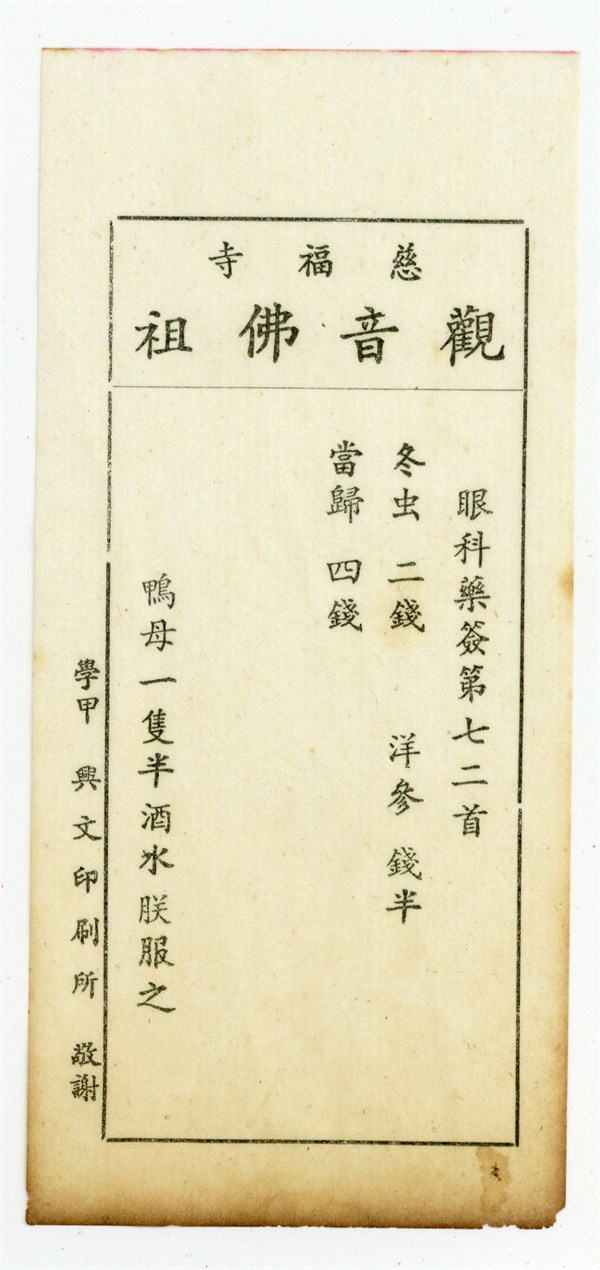 慈福寺
觀音佛祖
眼科藥簽第七二首
冬虫 二錢 洋參 錢半
當歸 四錢
鴨母一隻半酒水朕服之
學甲 興文印刷所 敬謝